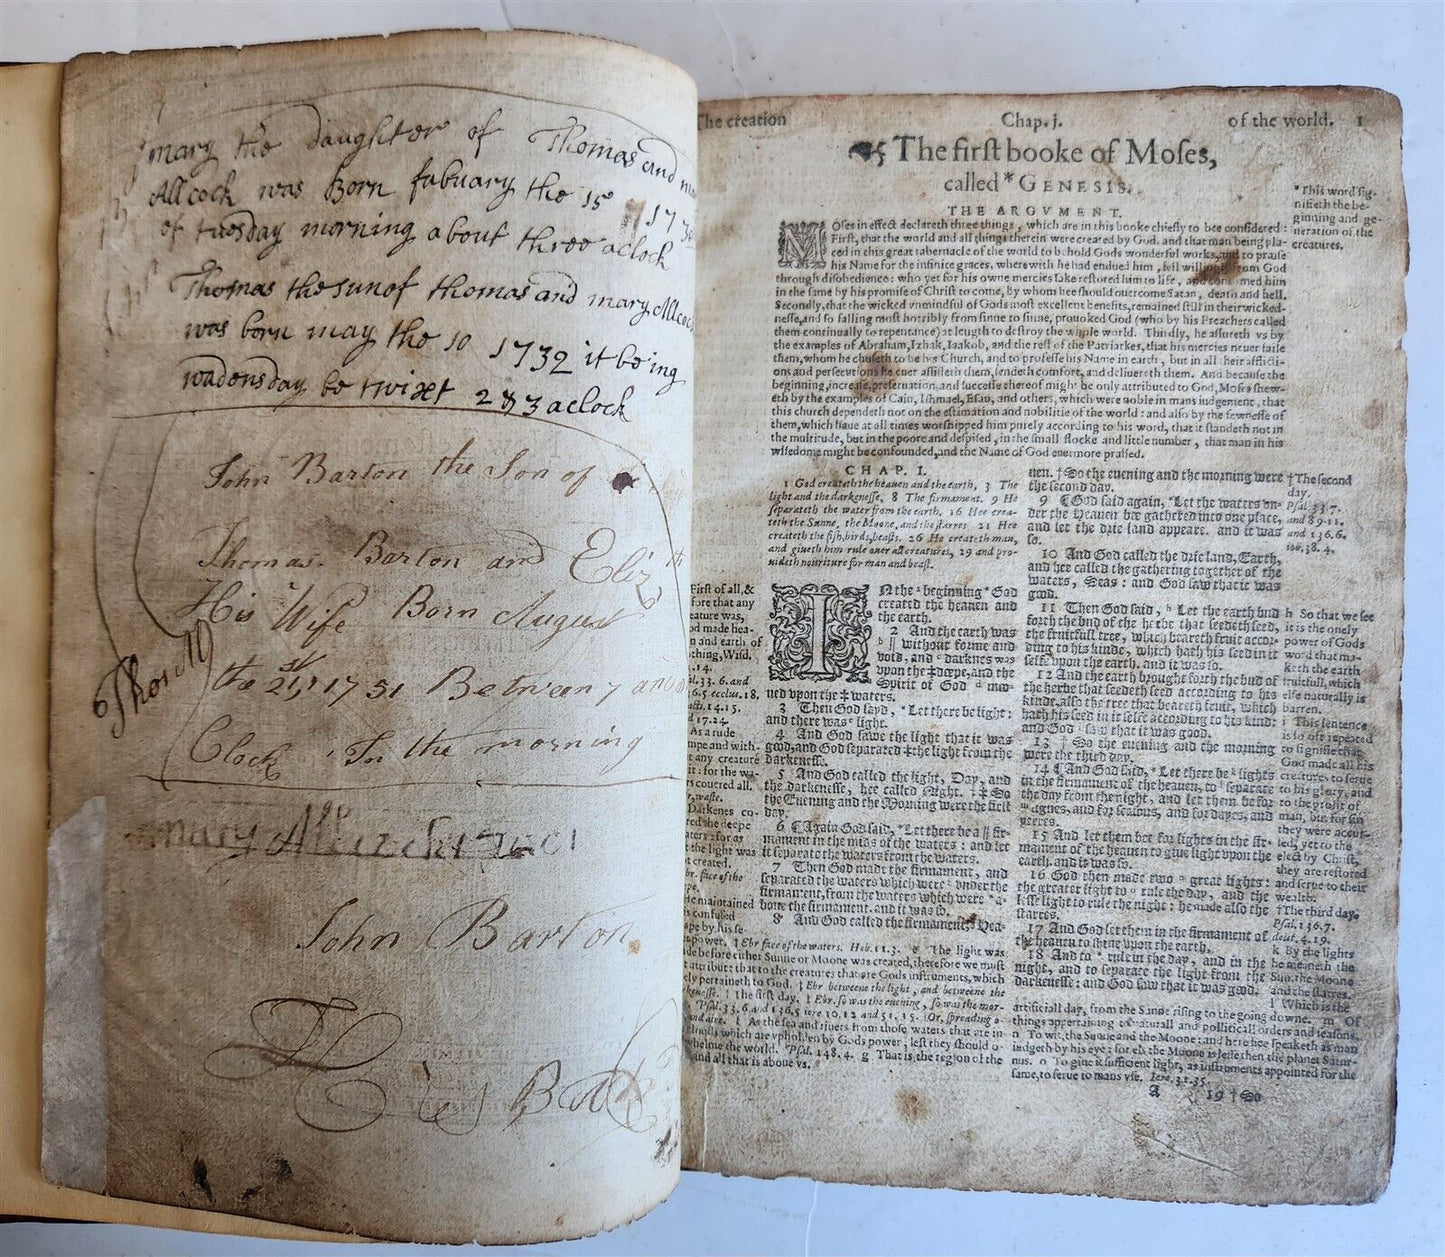 mary the daughter of Thomas and
Allcock was Born fabuary the 15
of tuesday morning about three aclock
Thomas the sun of thomas and mary Allcock
was born may the 10 1732 it being
wadensday be twixt 2 & 3 aclock
John Barton the Son of
Thomas Barton and Eliz
His Wife Born August
the 21st 1751 Between 7 and 8
Clock In the morning
Thos
mary
John Barton
The creation Chap. j. of the world. 1
The first booke of Moses,
called * GENESIS.
THE ARGVMENT.
MOses in effect declareth three things, which are in this booke chiefly to bee considered:
First, that the world and all things therein were created by God, and that man being pla-
ced in this great tabernacle of the world to behold Gods wonderful works, and to praise
his Name for the infinite graces, wherewith he had endued him, fell willingly from God
through disobedience: who yet for his owne mercies sake restored him to life, and confirmed him
in the same by his promise of Christ to come, by whom hee should ouercome Satan, death and hell.
Secondly, that the wicked vnmindful of Gods most excellent benefits, remained still in their wicked-
nesse, and so falling most horribly from sinne to sinne, prouoked God (who by his Preachers called
them continually to repentance) at length to destroy the whole world. Thirdly, he assureth vs by
the examples of Abraham, Izhak, Iaakob, and the rest of the Patriarkes, that his mercies neuer faile
them, whom he chuseth to be his Church, and to professe his Name in earth, but in all their afflicti-
ons and persecutions he euer assisteth them, sendeth comfort, and deliuereth them. And because the
beginning, increase, preseruation, and successe thereof might be only attributed to God, Moses shew-
eth by the examples of Cain, Ishmael, Esau, and others, which were noble in mans iudgement, that
this church dependeth not on the estimation and nobilitie of the world: and also by the fewnesse of
them, which haue at all times worshipped him purely according to his word, that it standeth not in
the multitude, but in the poore and despised, in the small flocke and little number, that man in his
wisedome might be confounded, and the Name of God euermore praised.
* This word sig-
nifieth the be-
ginning and ge-
neration of the
creatures.
CHAP. I.
1 God createth the heauen and the earth, 3 The
light and the darkenesse, 8 The firmament. 9 He
separateth the water from the earth. 16 Hee crea-
teth the Sunne, the Moone, and the starres 21 Hee
createth the fish, birds, beasts. 26 He createth man,
and giueth him rule ouer all creatures, 29 and pro-
uideth nouriture for man and beast.
IN the beginning God
created the heauen and
the earth.
2 And the earth was
without forme and
void, and darknes was
vpon the deepe, and the
Spirit of God mo-
ued vpon the waters.
3 Then God sayd, Let there be light:
and there was light.
4 And God sawe the light that it was
good, and God separated the light from the
darkenesse.
5 And God called the light, Day, and
the darkenesse, hee called Night. So
the Euening and the Morning were the first
day.
6 ¶ Again God said, Let there be a firm-
ament in the mids of the waters: and let
it separate the waters from the waters.
7 Then God made the firmament, and
separated the waters which were vnder the
firmament, from the waters which were a-
boue the firmament. and it was so.
8 And God called the firmament, Hea-
uen. † So the euening and the morning were
the second day.
9 ¶ God said again, Let the waters vn-
der the Heauen bee gathered into one place,
and let the drie land appeare. and it was
so.
10 And God called the drie land, Earth,
and hee called the gathering together of the
waters, Seas: and God saw that it was
good.
11 Then God said, Let the earth bud
forth the bud of the herbe that seedeth seed,
the fruitfull tree, which beareth fruit accor-
ding to his kinde, which hath his seed in it
selfe vpon the earth. and it was so.
12 And the earth brought forth the bud of
the herbe that seedeth seed according to his
kinde, also the tree that beareth fruit, which
hath his seed in it selfe according to his kind:
and God saw that it was good.
13 † So the euening and the morning
were the third day.
14 ¶ And God said, Let there be lights
in the firmament of the heauen, to separate
the day from the night, and let them be for
signes, and for seasons, and for dayes, and
yeeres.
15 And let them bee for lights in the fir-
mament of the heauen to giue light vpon the
earth. and it was so.
16 God then made two great lights:
the greater light to rule the day, and the
lesse light to rule the night: he made also the
starres.
17 And God set them in the firmament of
the heauen to shine vpon the earth.
18 And to rule in the day, and in the
night, and to separate the light from the
darkenesse: and God saw that it was good.
† The second
day.
Psal. 33.7.
and 89.11.
and 136.6.
iob. 38.4.
h So that we see
it is the onely
power of Gods
word that ma-
keth the earth
fruitfull, which
else naturally is
barren.
i This sentence
is so oft repeated
to signifie that
God made all his
creatures to serue
to his glory, and
to the profit of
man, but for sin
they were accur-
sed, yet to the
elect by Christ,
they are restored
and serue to their
wealth.
† The third day.
Psal. 136.7.
deut. 4.19.
k By the lights
he meaneth the
Sun, the Moone
and the starres.
l Which is the
artificiall day, from the Sunne rising to the going downe. m Of
things appertaining to naturall and politicall orders and seasons.
n To wit, the Sunne and the Moone: and here hee speaketh as man
iudgeth by his eye: for els the Moone is lesse then the planet Satur-
nus. o To giue it sufficient light, as instruments appointed for the
same, to serue to mans vse. Iere. 31.35.
A 19 † So
First of all, &
fore that any
eature was,
od made hea-
n and earth of
thing, Wisd.
.14.
al. 33.6. and
6.5. ecclus. 18.
acts. 14.15.
d 17.24.
As a rude
mpe and with-
t any creature
it: for the wa-
rs couered all.
r, waste.
Darkenes co-
red the deepe
aters: for as
t the light was
t created.
br. face of the
pe.
He maintained
is confused
ape by his se-
power. † Ebr face of the waters. Heb. 11.3. e The light was
de before either Sunne or Moone was created, therefore we must
t attribute that to the creatures that are Gods instruments, which
ly pertaineth to God. † Ebr betweene the light, and betweene the
rkenesse. † The first day. † Ebr. so was the euening, so was the mor-
Psal. 33.6 and 136.5 iere 10.12 and 51.15. Or, spreading o-
and aire. f As the sea and riuers from those waters that are in
clouds which are vpholden by Gods power, lest they should o-
whelme the world. Psal. 148.4. g That is, the region of the
and all that is aboue vs.